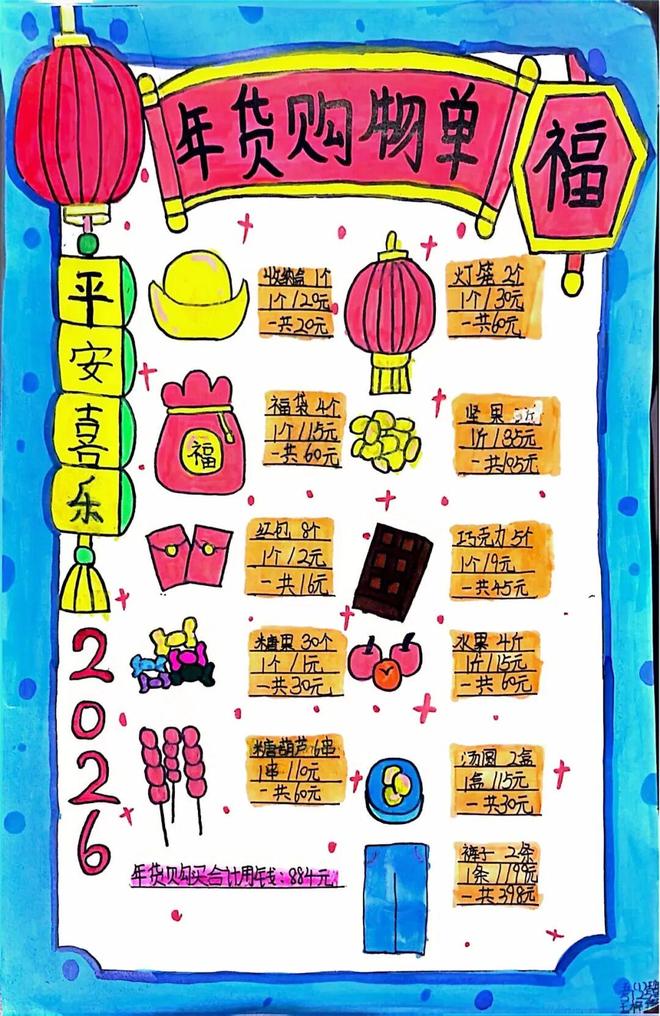 年货购物单
福
平
安
喜
乐
2026
收纳盒 1个
1个/20元
一共20元
灯笼 2个
1个/30元
一共60元
福袋 4个
1个/15元
一共60元
福
坚果
1斤/35元
一共105元
红包 8个
1个/2元
一共16元
巧克力 5个
1个/9元
一共45元
糖果 30个
1个/1元
一共30元
水果 4斤
1斤/15元
一共60元
糖葫芦 6串
1串/10元
一共60元
汤圆 2盒
1盒/15元
一共30元
裤子 2条
1条/199元
一共398元
年货购买合计用钱：884元